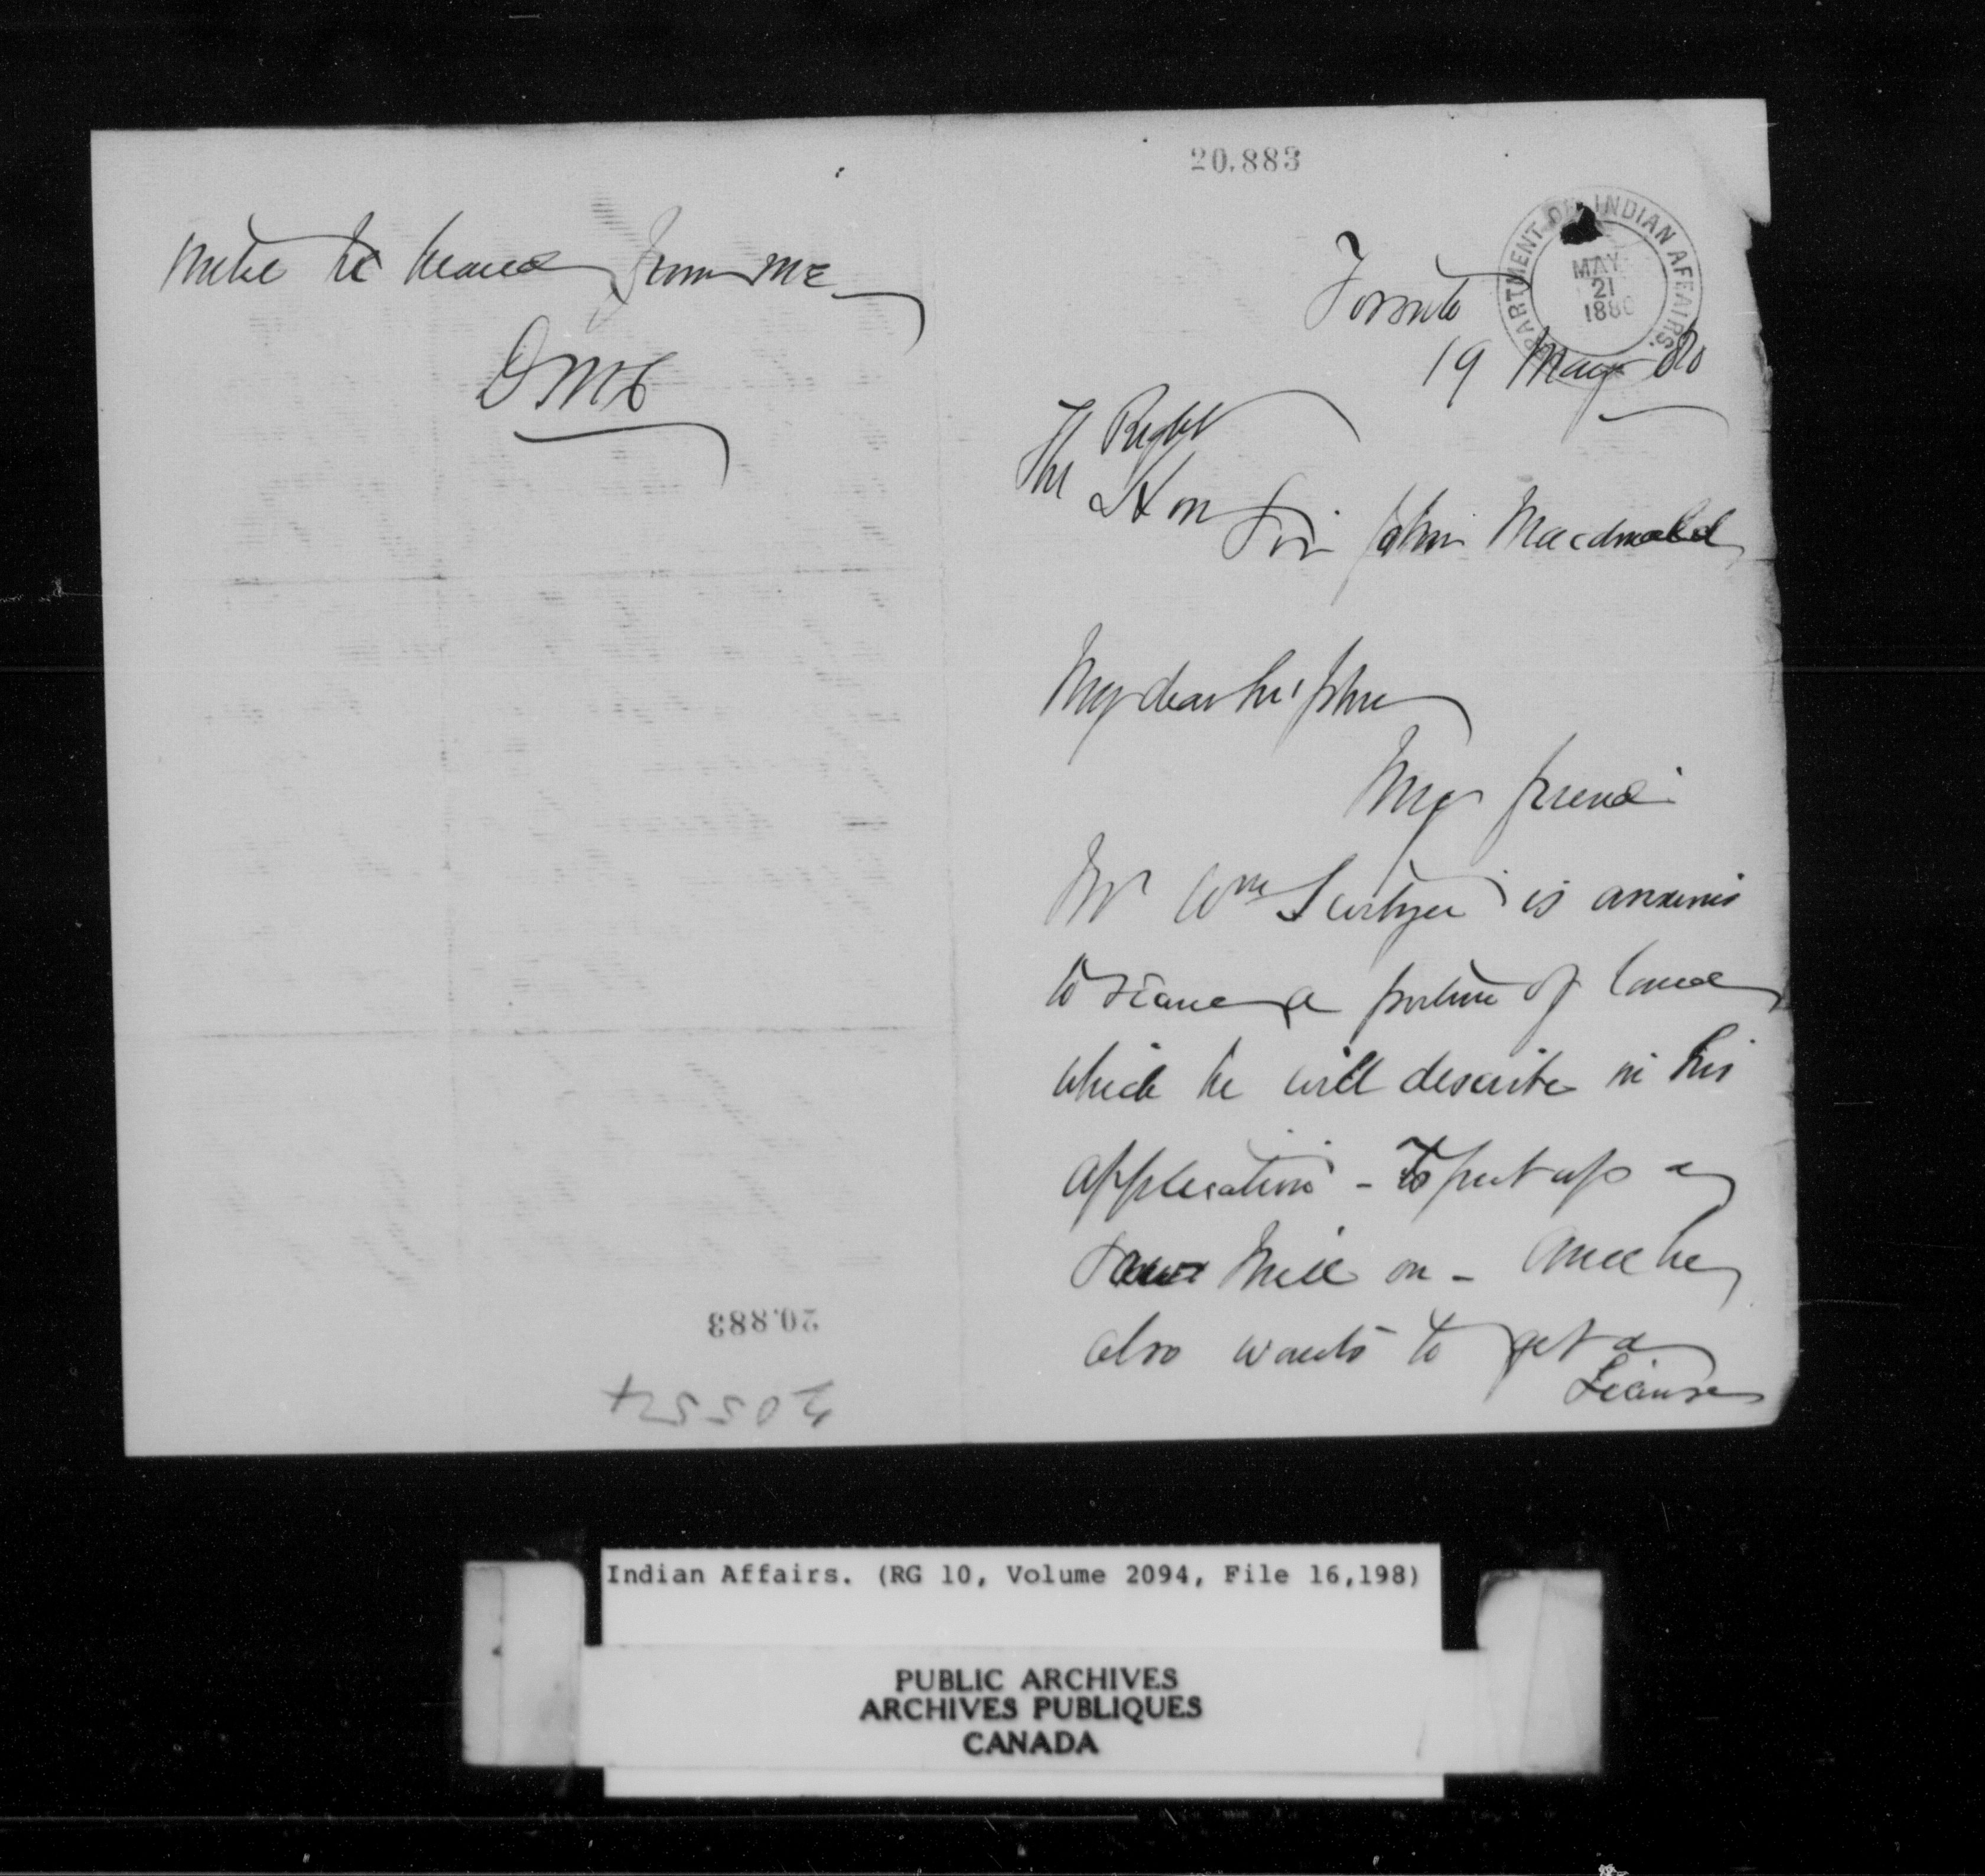 until he hears from me
DML
20.883
20554
20.883
DEPARTMENT OF INDIAN AFFAIRS.
MAY
21
1880
Toronto
19 May 80
The Right
Hon
Sir John Macdonald
My dear Sir John
My friend
Mr Wm is anxious
to secure a portion of land
which he will describe in his
application - to put up a
Saw Mill on - And he
also wants to get a
License
Indian Affairs. (RG 10, Volume 2094, File 16,198)
PUBLIC ARCHIVES
ARCHIVES PUBLIQUES
CANADA